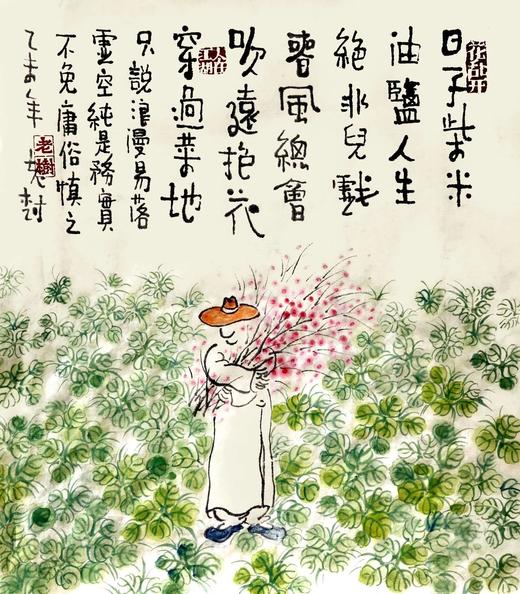 日子柴米
油鹽人生
絕非兒戲
春風總會
吹遠抱花
穿過菜地
只說浪漫易落
虛空純是務實
不免庸俗慎之
乙未年老树
老樹
人在江湖